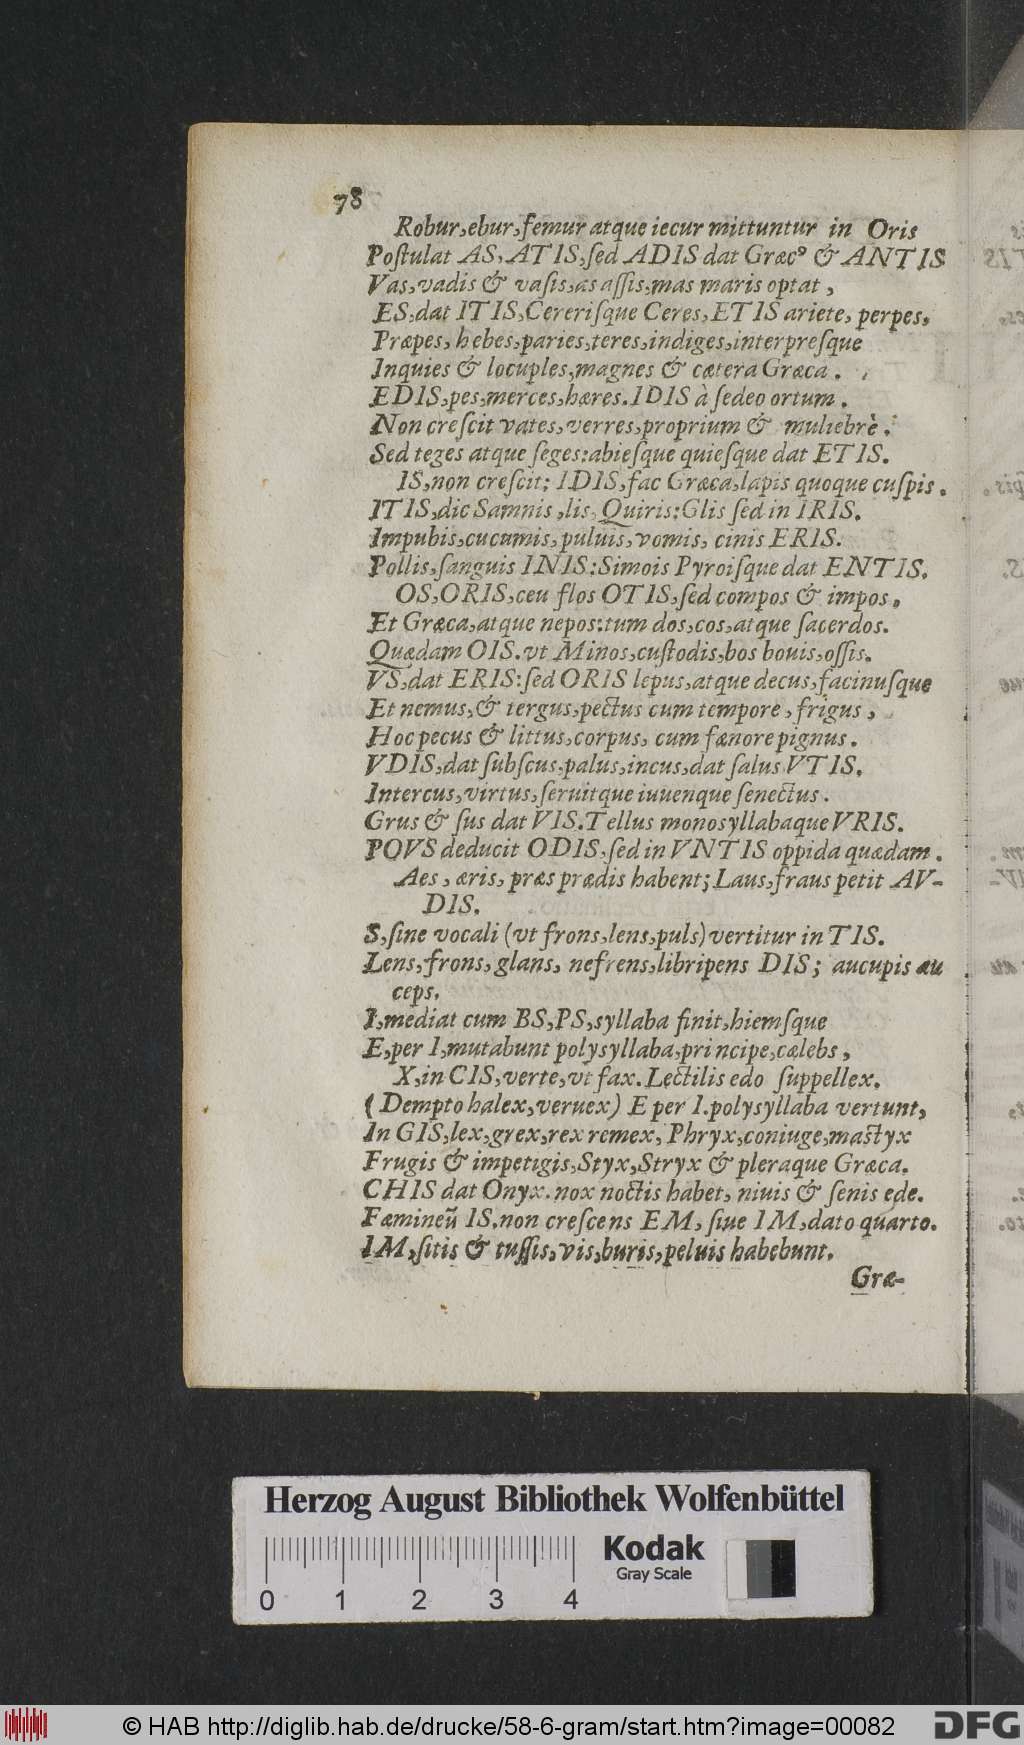 78
Robur,ebur,femur atque iecur mittuntur in Oris
Poſtulat AS, ATIS,ſed ADIS dat Græcꝰ & ANTIS
Vas,vadis & vaſis,as aſſis,mas maris optat,
ES,dat ITIS,Cereriſque Ceres,ETIS ariete, perpes,
Præpes, hebes,paries,teres,indiges,interpreſque
Inquies & locuples,magnes & cætera Græca.
EDIS,pes,merces,hæres.IDIS à ſedeo ortum.
Non creſcit vates,verres,proprium & muliebrè.
Sed teges atque ſeges:abieſque quieſque dat ETIS.
IS,non creſcit; IDIS,fac Græca,lapis quoque cuſpis.
ITIS,dic Samnis,lis, Quiris:Glis ſed in IRIS.
Impubis,cucumis,puluis,vomis, cinis ERIS.
Pollis,ſanguis INIS:Simois Pyroiſque dat ENTIS.
OS,ORIS,ceu flos OTIS,ſed compos & impos,
Et Græca,atque nepos:tum dos,cos,atque ſacerdos.
Quædam OIS.vt Minos,cuſtodis,bos bouis,oſſis.
VS,dat ERIS:ſed ORIS lepus,atque decus,facinuſque
Et nemus,& tergus,pectus cum tempore, frigus,
Hoc pecus & littus,corpus, cum fænore pignus.
VDIS,dat ſubſcus,palus,incus,dat ſalus VTIS.
Intercus,virtus,ſeruitque iuuenque ſenectus.
Grus & ſus dat VIS.Tellus monosyllabaque VRIS.
POVS deducit ODIS,ſed in VNTIS oppida quædam.
Aes, æris, præs prædis habent; Laus,fraus petit AV-
DIS.
S,ſine vocali (vt frons,lens,puls) vertitur in TIS.
Lens,frons,glans, nefrens,libripens DIS; aucupis au
ceps.
I,mediat cum BS,PS,syllaba finit,hiemſque
E,per I,mutabunt polysyllaba,principe,cælebs,
X,in CIS,verte,vt fax. Lectilis edo ſuppellex.
(Dempto halex,veruex) E per I.polysyllaba vertunt,
In GIS,lex,grex,rex remex, Phryx,coniuge,mastyx
Frugis & impetigis,Styx,Stryx & pleraque Græca.
CHIS dat Onyx. nox noctis habet, niuis & ſenis ede.
Fæmineũ IS,non creſcens EM, ſiue IM,dato quarto.
IM,ſitis & tuſſis,vis,buris,peluis habebunt.
Græ-
Herzog August Bibliothek Wolfenbüttel
Kodak
Gray Scale
0 1 2 3 4
© HAB http://diglib.hab.de/drucke/58-6-gram/start.htm?image=00082
DFG